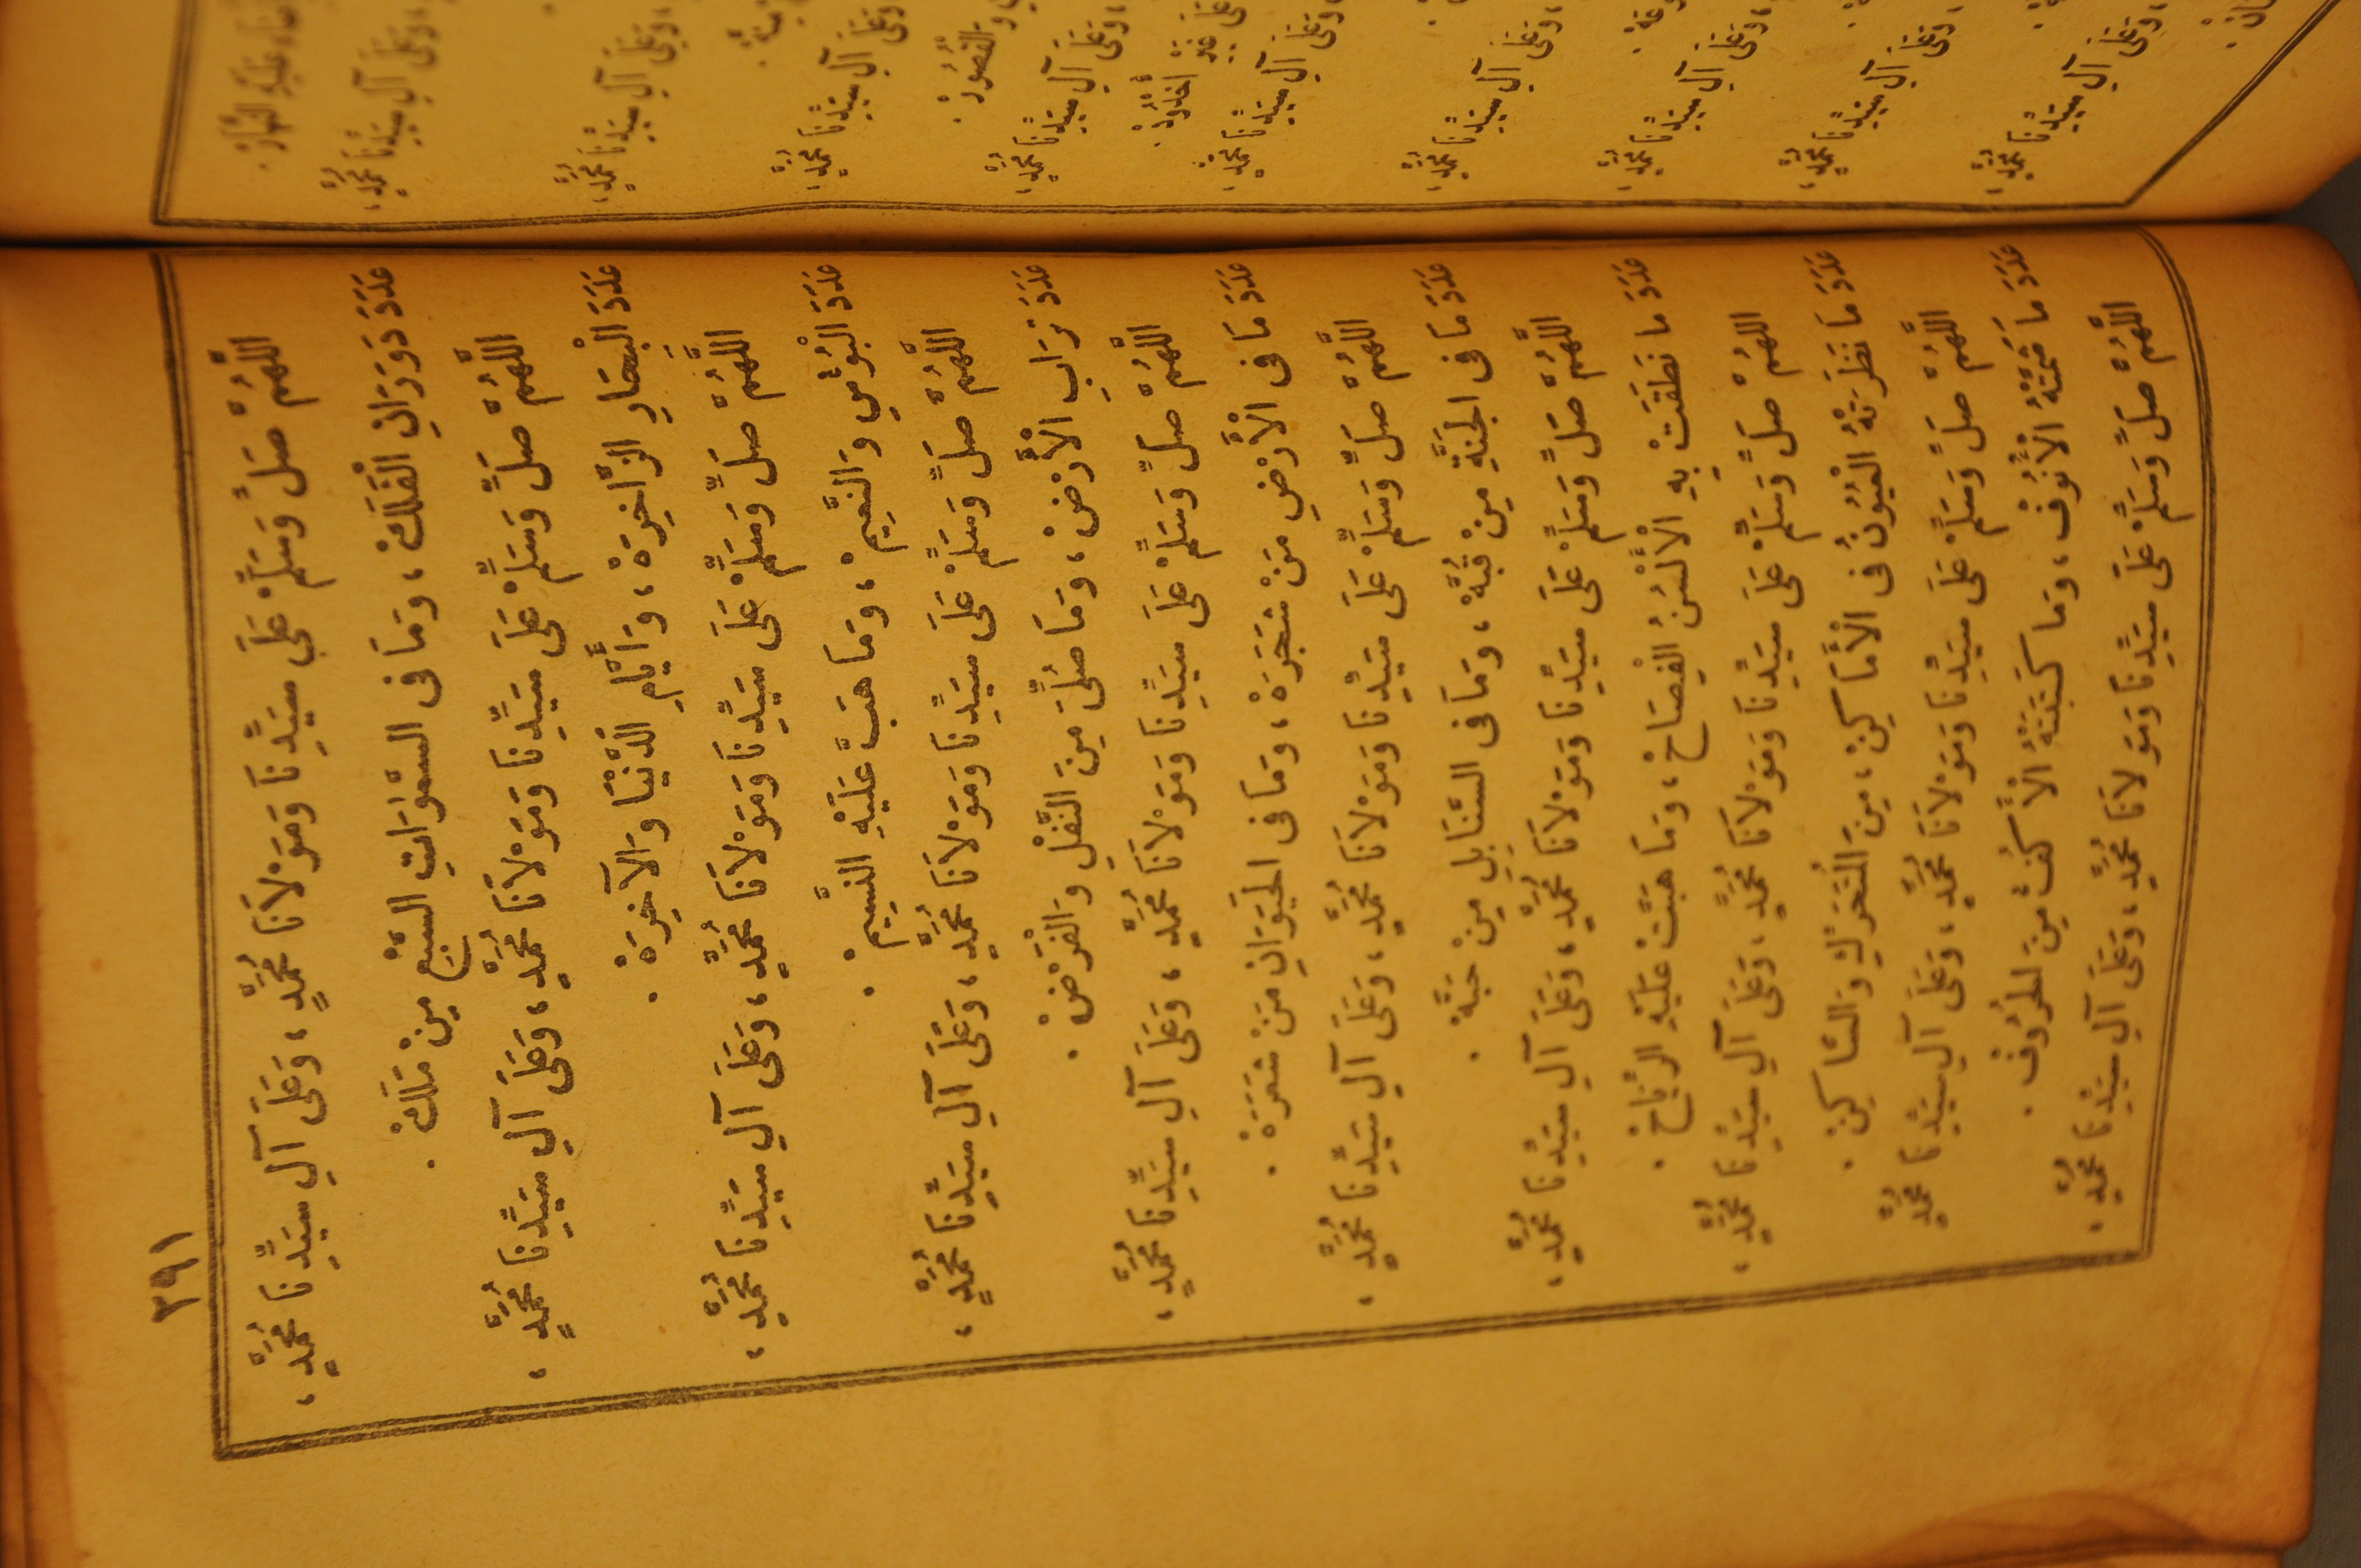 ٢٩١
اللَّهُمَّ صَلِّ وَسَلِّمْ عَلَى سَيِّدِنَا وَمَوْلَانَا مُحَمَّدٍ، وَعَلَى آلِ سَيِّدِنَا مُحَمَّدٍ،
عَدَدَ دَوَرَانِ الْفَلَكْ، وَمَا فِى السَّمَوَاتِ السَّبْعِ مِنْ مَلَكْ.
اللَّهُمَّ صَلِّ وَسَلِّمْ عَلَى سَيِّدِنَا وَمَوْلَانَا مُحَمَّدٍ، وَعَلَى آلِ سَيِّدِنَا مُحَمَّدٍ،
عَدَدَ الْبِحَارِ الزَّاخِرَهْ، وَأَيَّامِ الدُّنْيَا وَالْآخِرَهْ.
اللَّهُمَّ صَلِّ وَسَلِّمْ عَلَى سَيِّدِنَا وَمَوْلَانَا مُحَمَّدٍ، وَعَلَى آلِ سَيِّدِنَا مُحَمَّدٍ،
عَدَدَ الْبُؤْسِ وَالنَّعِيمْ، وَمَا هَبَّ عَلَيْهِ النَّسِيمْ.
اللَّهُمَّ صَلِّ وَسَلِّمْ عَلَى سَيِّدِنَا وَمَوْلَانَا مُحَمَّدٍ، وَعَلَى آلِ سَيِّدِنَا مُحَمَّدٍ،
عَدَدَ تُرَابِ الْأَرْضْ، وَمَا صُلِّىَ مِنَ النَّفْلِ وَالْفَرْضْ.
اللَّهُمَّ صَلِّ وَسَلِّمْ عَلَى سَيِّدِنَا وَمَوْلَانَا مُحَمَّدٍ، وَعَلَى آلِ سَيِّدِنَا مُحَمَّدٍ،
عَدَدَ مَا فِى الْأَرْضِ مِنْ شَجَرَهْ، وَمَا فِى الْحَيَوَانِ مِنْ شَعَرَهْ.
اللَّهُمَّ صَلِّ وَسَلِّمْ عَلَى سَيِّدِنَا وَمَوْلَانَا مُحَمَّدٍ، وَعَلَى آلِ سَيِّدِنَا مُحَمَّدٍ،
عَدَدَ مَا فِى الْجَنَّةِ مِنْ قُبَّهْ، وَمَا فِى السَّنَابِلِ مِنْ حَبَّهْ.
اللَّهُمَّ صَلِّ وَسَلِّمْ عَلَى سَيِّدِنَا وَمَوْلَانَا مُحَمَّدٍ، وَعَلَى آلِ سَيِّدِنَا مُحَمَّدٍ،
عَدَدَ مَا نَطَقَتْ بِهِ الْأَلْسُنُ الْفِصَاحْ، وَمَا هَبَّتْ عَلَيْهِ الرِّيَاحْ.
اللَّهُمَّ صَلِّ وَسَلِّمْ عَلَى سَيِّدِنَا وَمَوْلَانَا مُحَمَّدٍ، وَعَلَى آلِ سَيِّدِنَا مُحَمَّدٍ،
عَدَدَ مَا نَظَرَتْهُ الْعُيُونُ فِى الْأَمَاكِنْ، مِنَ الْمُتَحَرِّكِ وَالسَّاكِنْ.
اللَّهُمَّ صَلِّ وَسَلِّمْ عَلَى سَيِّدِنَا وَمَوْلَانَا مُحَمَّدٍ، وَعَلَى آلِ سَيِّدِنَا مُحَمَّدٍ
عَدَدَ مَا شَمَّتْهُ الْأُنُوفْ، وَمَا كَتَبَتْهُ الْأَكُفُّ مِنَ الْحُرُوفْ.
اللَّهُمَّ صَلِّ وَسَلِّمْ عَلَى سَيِّدِنَا وَمَوْلَانَا مُحَمَّدٍ، وَعَلَى آلِ سَيِّدِنَا مُحَمَّدٍ،